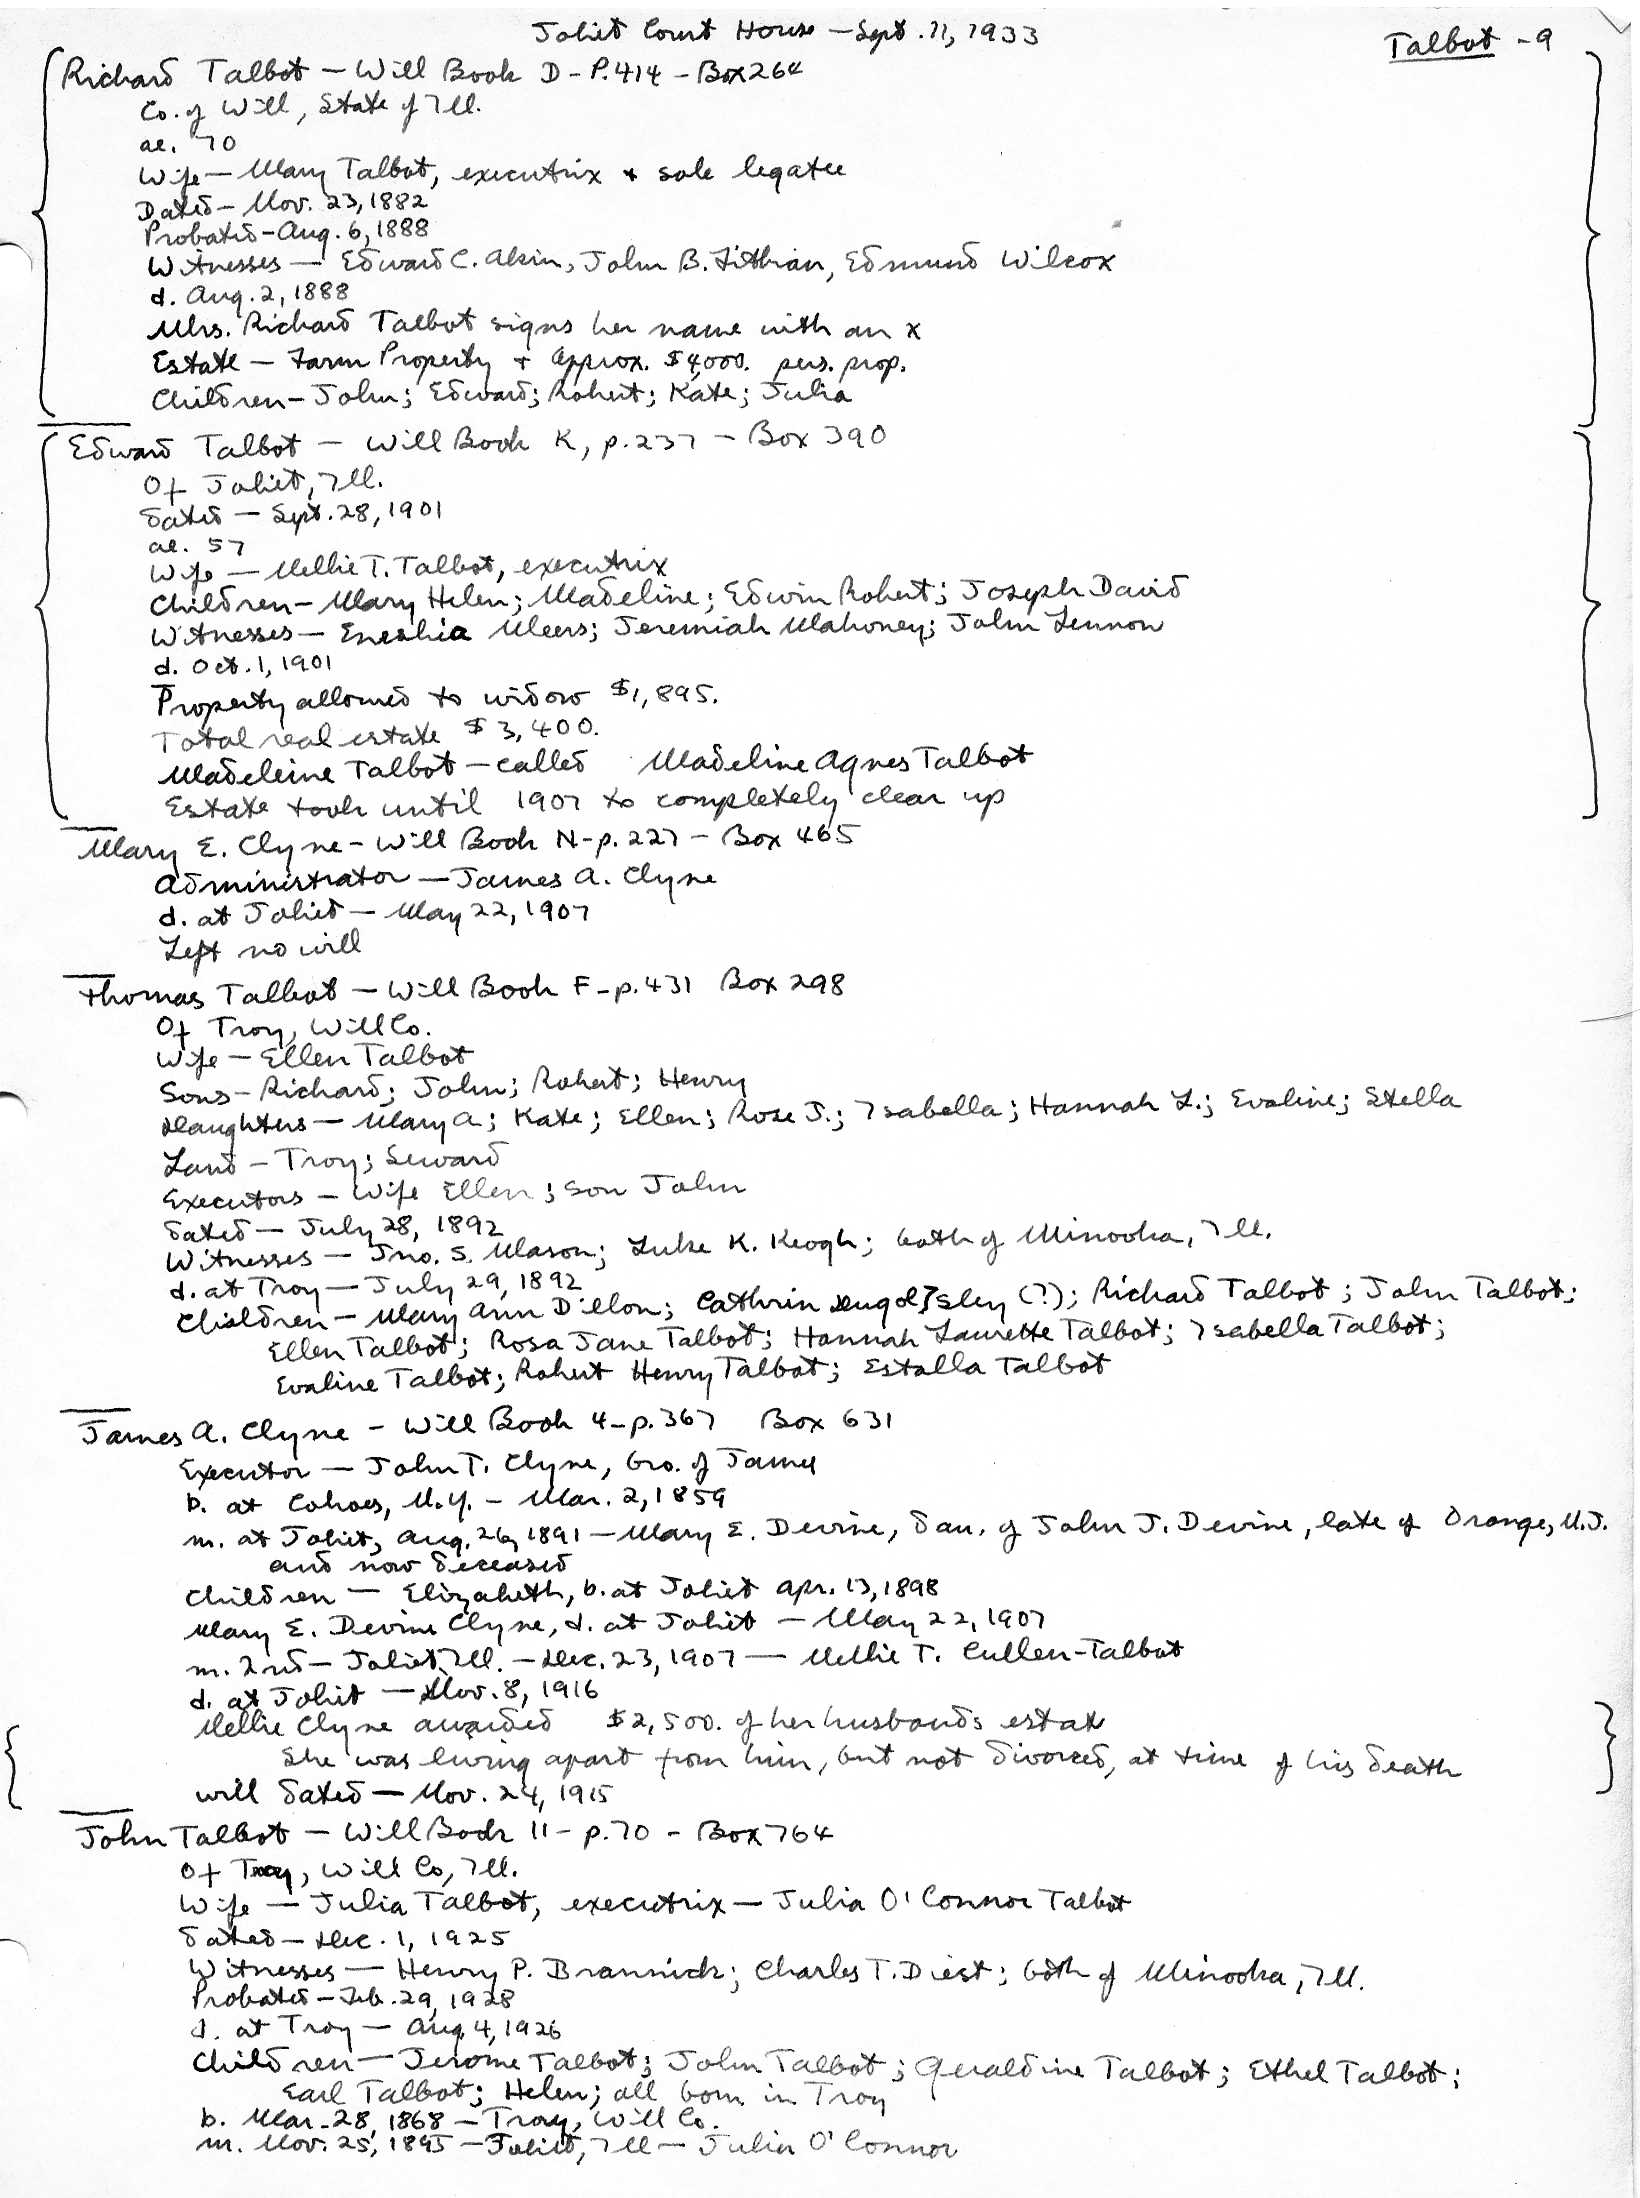 Joliet Court House — Sept. 11, 1933
Talbot - 9
Richard Talbot — Will Book D - P. 414 - Box 264
Co. of Will, State of Ill.
ae. 70
Wife — Mary Talbot, executrix + sole legatee
Dated — Nov. 23, 1882
Probated - Aug. 6, 1888
Witnesses — Edward C. Akin, John B. Fithian, Edmund Wilcox
d. Aug. 2, 1888
Mrs. Richard Talbot signs her name with an x
Estate — Farm Property + Approx. $4,000. pers. prop.
Children - John; Edward; Robert; Kate; Julia
Edward Talbot — Will Book K, p. 237 - Box 390
Of Joliet, Ill.
Dated — Sept. 28, 1901
ae. 57
Wife — Nellie T. Talbot, executrix
Children - Mary Helen; Madeline; Edwin Robert; Joseph David
Witnesses — Meers; Jeremiah Mahoney; John Lennon
d. Oct. 1, 1901
Property allowed to widow $1,895.
Total real estate $3,400.
Madeleine Talbot — called Madeline Agnes Talbot
Estate took until 1907 to completely clear up
Mary E. Clyne - Will Book N - p. 227 - Box 465
Administrator — James A. Clyne
d. at Joliet — May 22, 1907
Left no will
Thomas Talbot — Will Book F - p. 431 Box 298
Of Troy, Will Co.
Wife — Ellen Talbot
Sons - Richard; John; Robert; Henry
Daughters — Mary A; Kate; Ellen; Rose J.; Isabella; Hannah L.; Evaline; Stella
Land - Troy; Seward
Executors — Wife Ellen; son John
Dated — July 28, 1892
Witnesses — Jno. S. Mason; Luke K. Keogh; both of Minooka, Ill.
d. at Troy — July 29, 1892
Children — Mary Ann Dillon; Cathrin (?); Richard Talbot; John Talbot;
Ellen Talbot; Rosa Jane Talbot; Hannah Laurette Talbot; Isabella Talbot;
Evaline Talbot; Robert Henry Talbot; Estalla Talbot
James A. Clyne - Will Book 4 - p. 367 Box 631
Executor — John T. Clyne, bro. of James
b. at Cohoes, N.Y. - Mar. 2, 1859
m. at Joliet, Aug. 26, 1891 — Mary E. Devine, dau. of John J. Devine, late of Orange, N.J.
and now deceased
Children — Elizabeth, b. at Joliet Apr. 13, 1898
Mary E. Devine Clyne, d. at Joliet — May 22, 1907
m. 2nd — Joliet, Ill. — Dec. 23, 1907 — Nellie T. Cullen-Talbot
d. at Joliet — Nov. 8, 1916
Nellie Clyne awarded $2,500. of her husbands estate
She was living apart from him, but not divorced, at time of his death
will dated — Nov. 24, 1915
John Talbot — Will Book 11 - p. 70 - Box 764
Of Troy, Will Co, Ill.
Wife — Julia Talbot, executrix — Julia O'Connor Talbot
Dated — Dec. 1, 1925
Witnesses — Henry P. Brannick; Charles T. Diest; both of Minooka, Ill.
Probated — Feb. 29, 1928
d. at Troy — Aug 4, 1926
Children — Jerome Talbot; John Talbot; Geraldine Talbot; Ethel Talbot;
Earl Talbot; Helen; all born in Troy
b. Mar. 28, 1868 — Troy, Will Co.
m. Nov. 25, 1895 — Joliet, Ill — Julia O'Connor